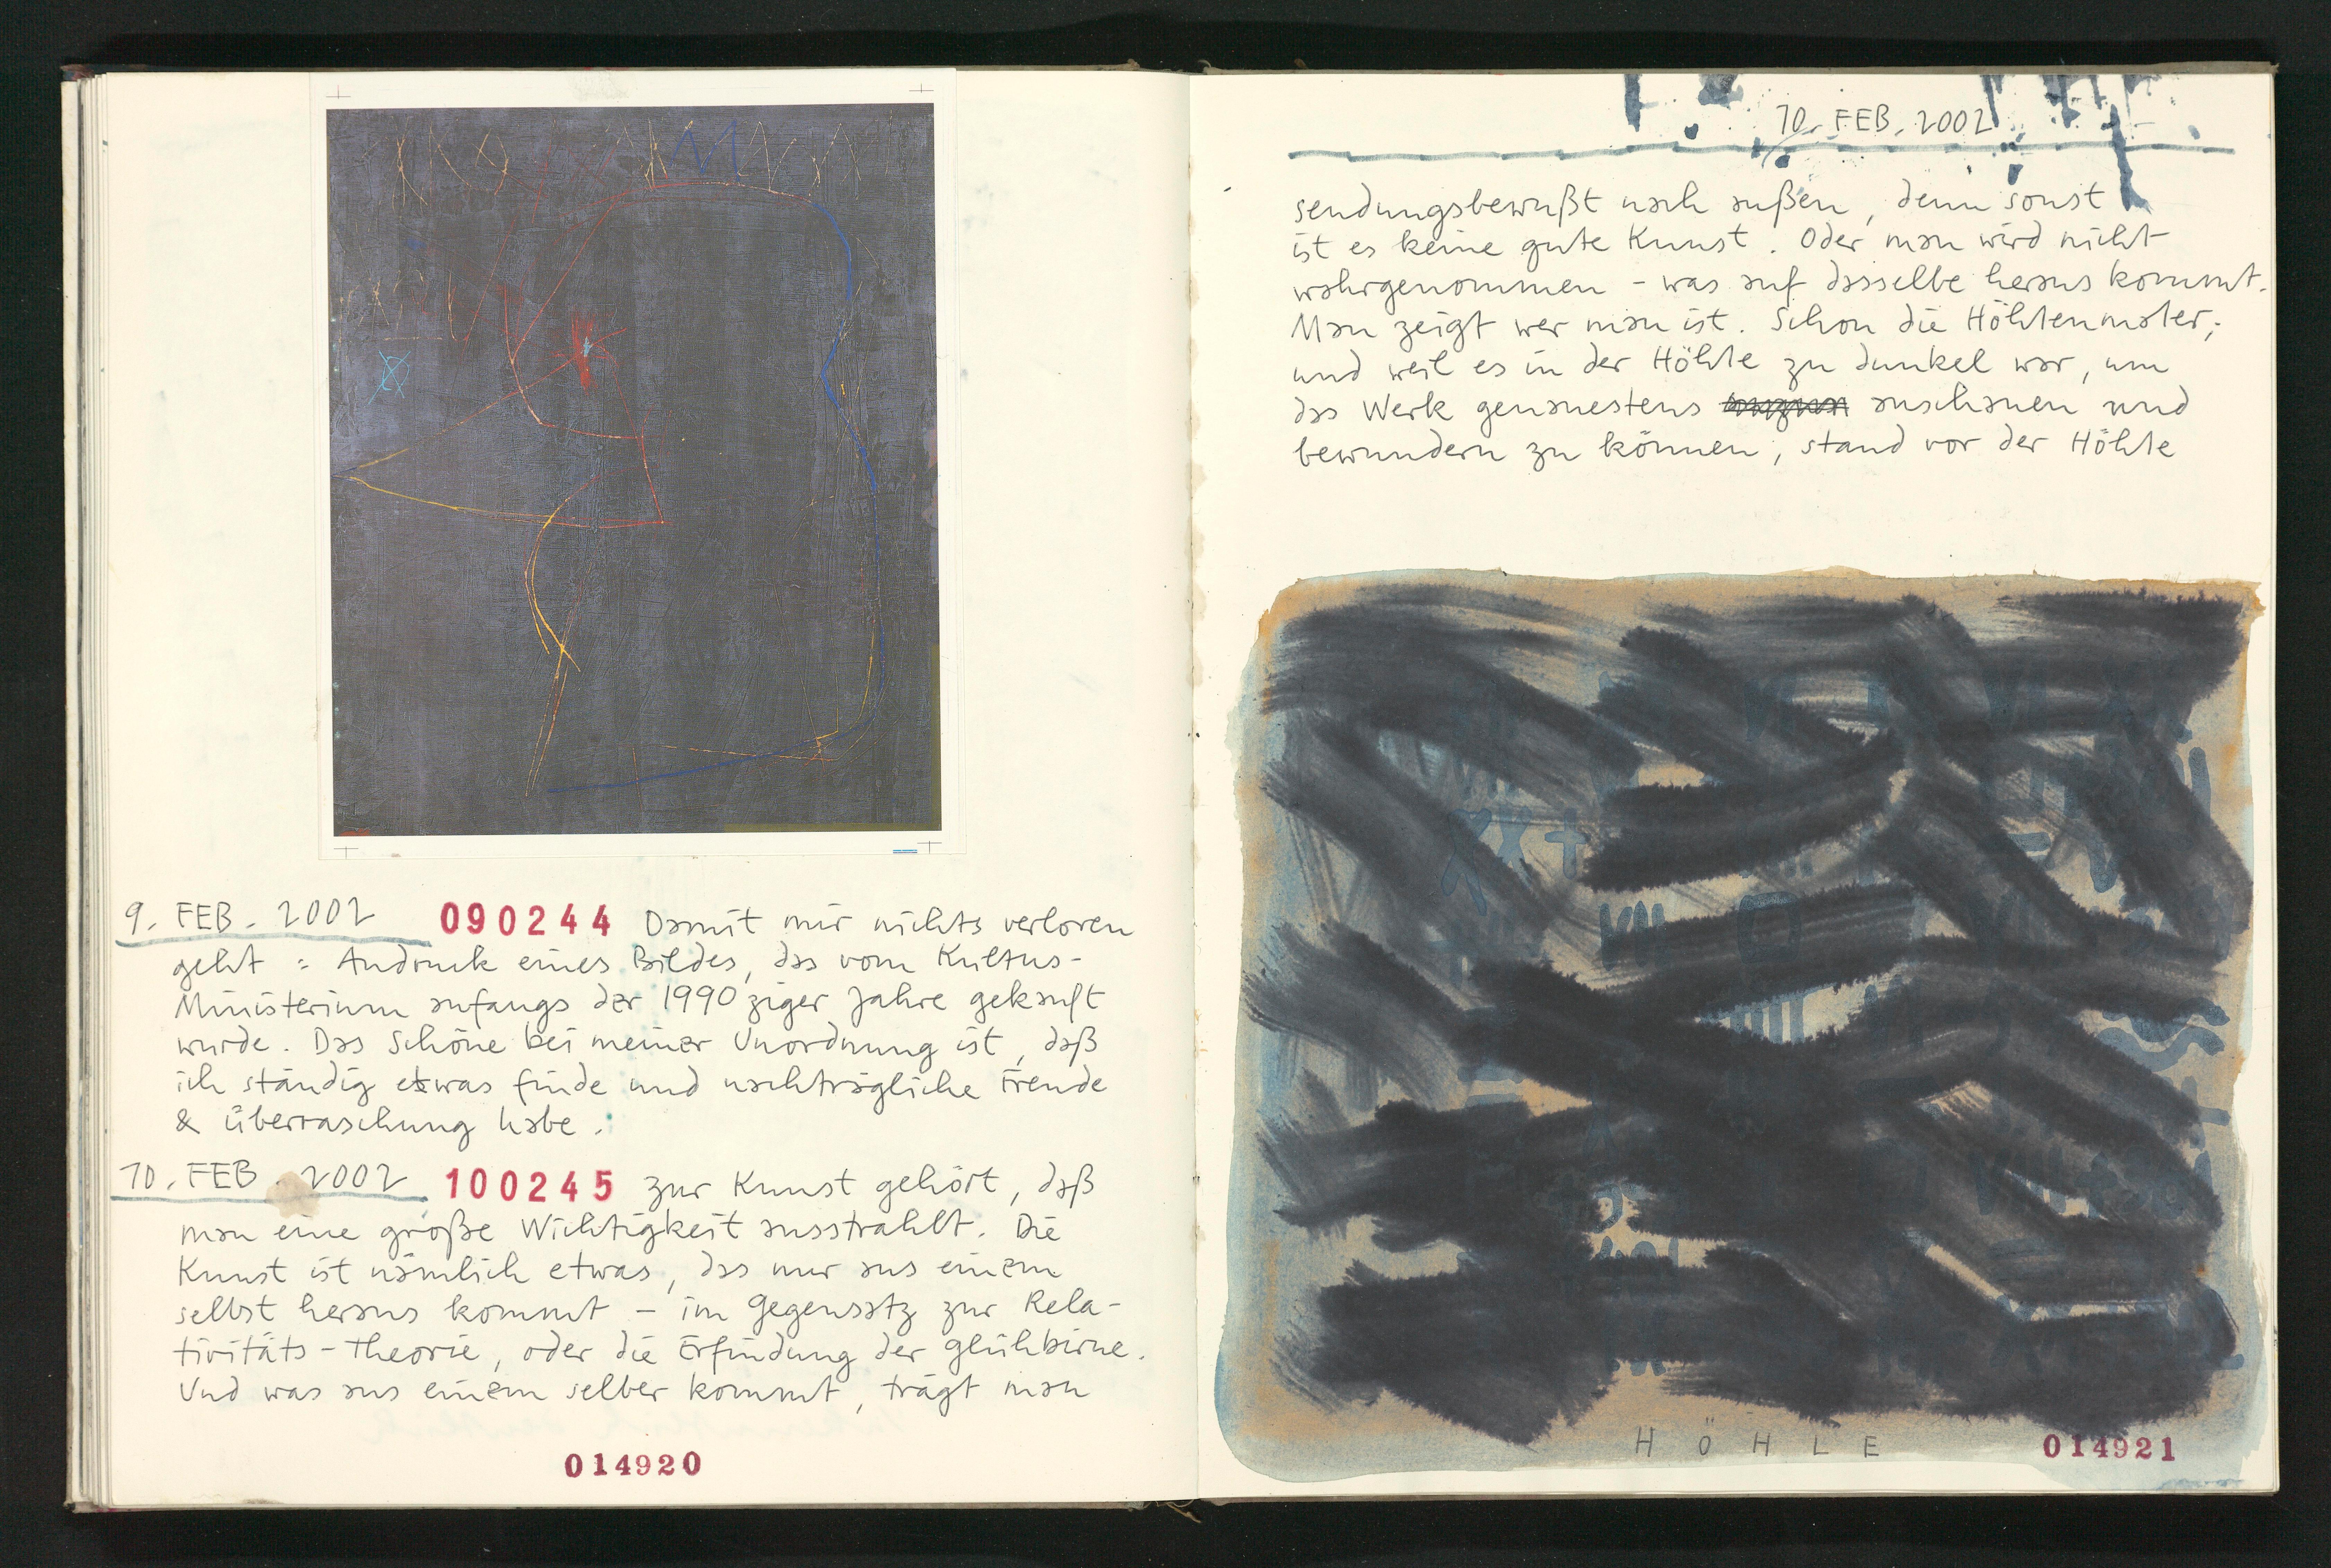 9. FEB. 2002 090244 Damit mir nichts verloren
geht : Andruck eines Bildes, das vom Kultus-
Ministerium anfangs der 1990ziger Jahre gekauft
wurde. Das Schöne bei meiner Unordnung ist, daß
ich ständig etwas finde und nachträgliche Freude
& Überraschung habe.
10. FEB. 2002 100245 zur Kunst gehört, daß
man eine große Wichtigkeit ausstrahlt. Die
Kunst ist nämlich etwas, das nur aus einem
selbst heraus kommt – im Gegensatz zur Rela-
tivitäts-Theorie, oder die Erfindung der Glühbirne.
Und was aus einem selber kommt, trägt man
014920
10. FEB. 2002
sendungsbewußt nach außen, denn sonst
ist es keine gute Kunst. Oder man wird nicht
wahrgenommen – was auf dasselbe heraus kommt.
Man zeigt wer man ist. Schon die Höhlenmaler;
und weil es in der Höhle zu dunkel war, um
das Werk genauestens anschauen und
bewundern zu können, stand vor der Höhle
HÖHLE
014921